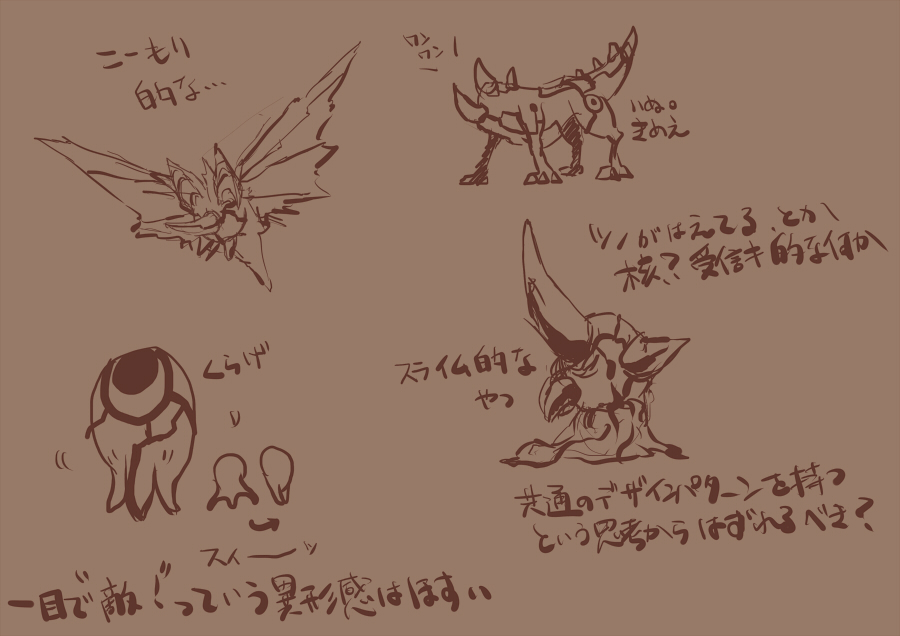 こーもり
的な…
ワン
ワン!
いぬ。
きめえ
ツノがはえてる、とか
核?受信キ的な何か
スライム的な
やつ
くらげ
スィーーッ
共通のデザインパターンを持つ
という思考からはずれるべき?
一目で敵!っていう異形感はほすぃ